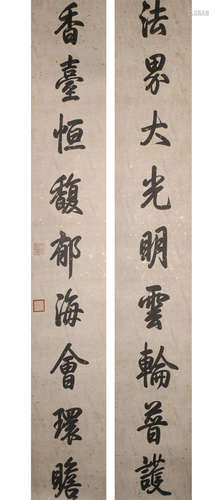 法界大光明雲輪普護
香臺恒馥郁海會環瞻